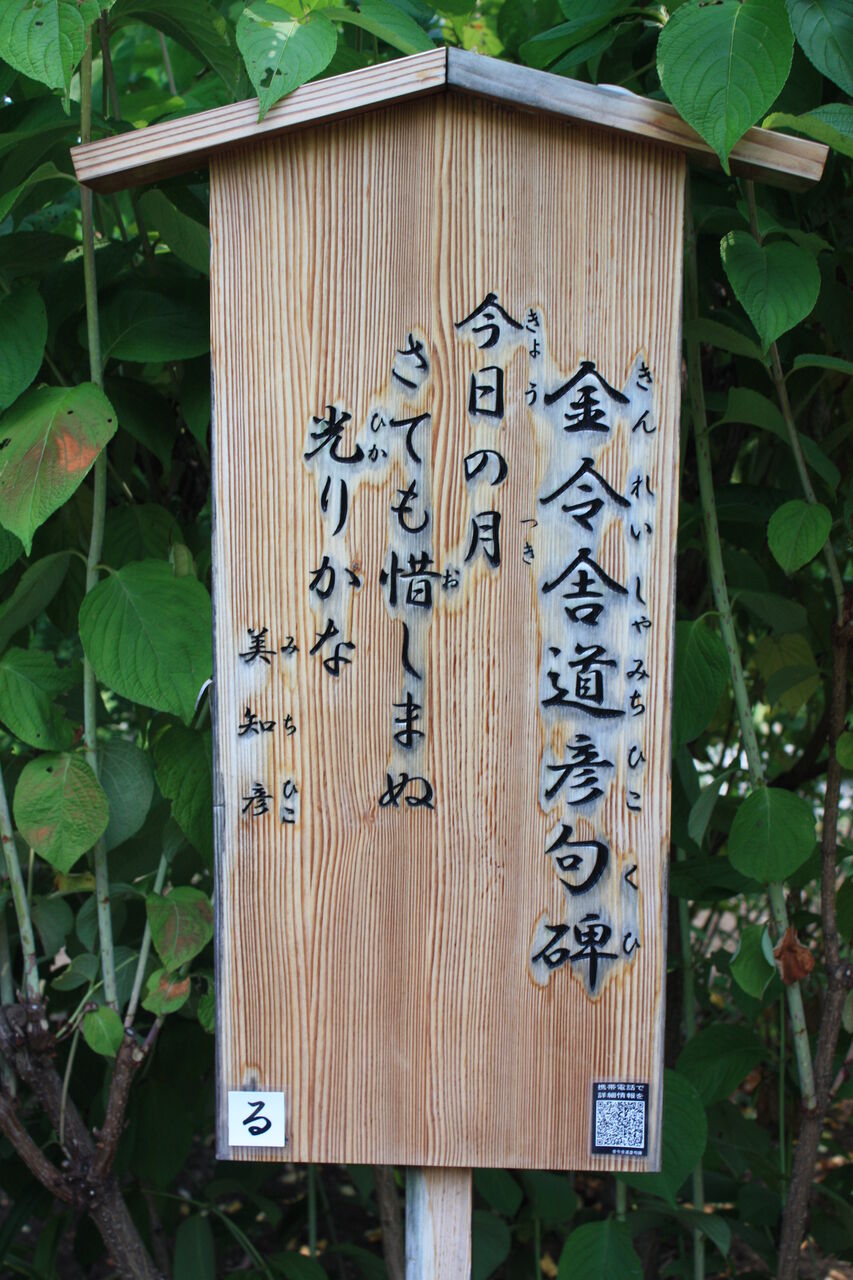 金令舎道彦句碑
きんれいしゃみちひこくひ
今日の月
きょう
つき
さても惜しまぬ
お
光りかな
ひか
美知彦
みちひこ
る
携帯電話で
詳細情報を